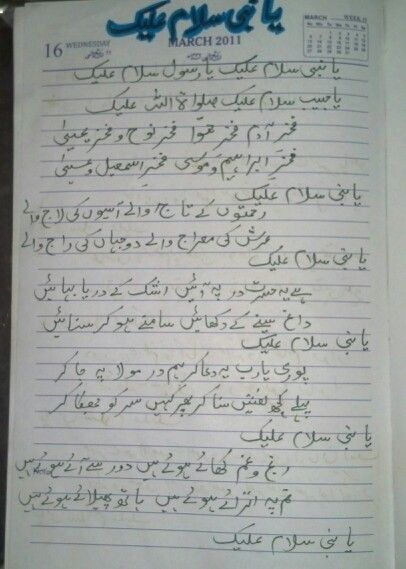 یا نبی سلام علیک
16 WEDNESDAY
MARCH 2011
MARCH
WEEK 11
یا نبی سلام علیک یا رسول سلام علیک
یا حبیب سلام علیک صلوٰۃ اللہ علیک
فخرِ آدم فخرِ حوا فخرِ نوح و فخرِ یحییٰ
فخرِ ابراہیم و موسیٰ فخرِ اسمعیل و عیسیٰ
یا نبی سلام علیک
رحمتوں کے تاج والے آسیوں کی لاج والے
عرش کی معراج والے دو جہاں کی راج والے
یا نبی سلام علیک
ہے یہ حسرت در پہ آئیں اشک کے دریا بہائیں
داغ سینے کے دکھائیں سامنے ہو کر سنائیں
یا نبی سلام علیک
پوری یا رب یہ دعا کر ہم در مولا پہ جا کر
پہلے کچھ نعتیں سنا کر پھر کہیں سر کو جھکا کر
یا نبی سلام علیک
رنج و غم کھائے ہوئے ہیں دور سے آئے ہوئے ہیں
تم پہ اترائے ہوئے ہیں ہاتھ پھیلائے ہوئے ہیں
یا نبی سلام علیک